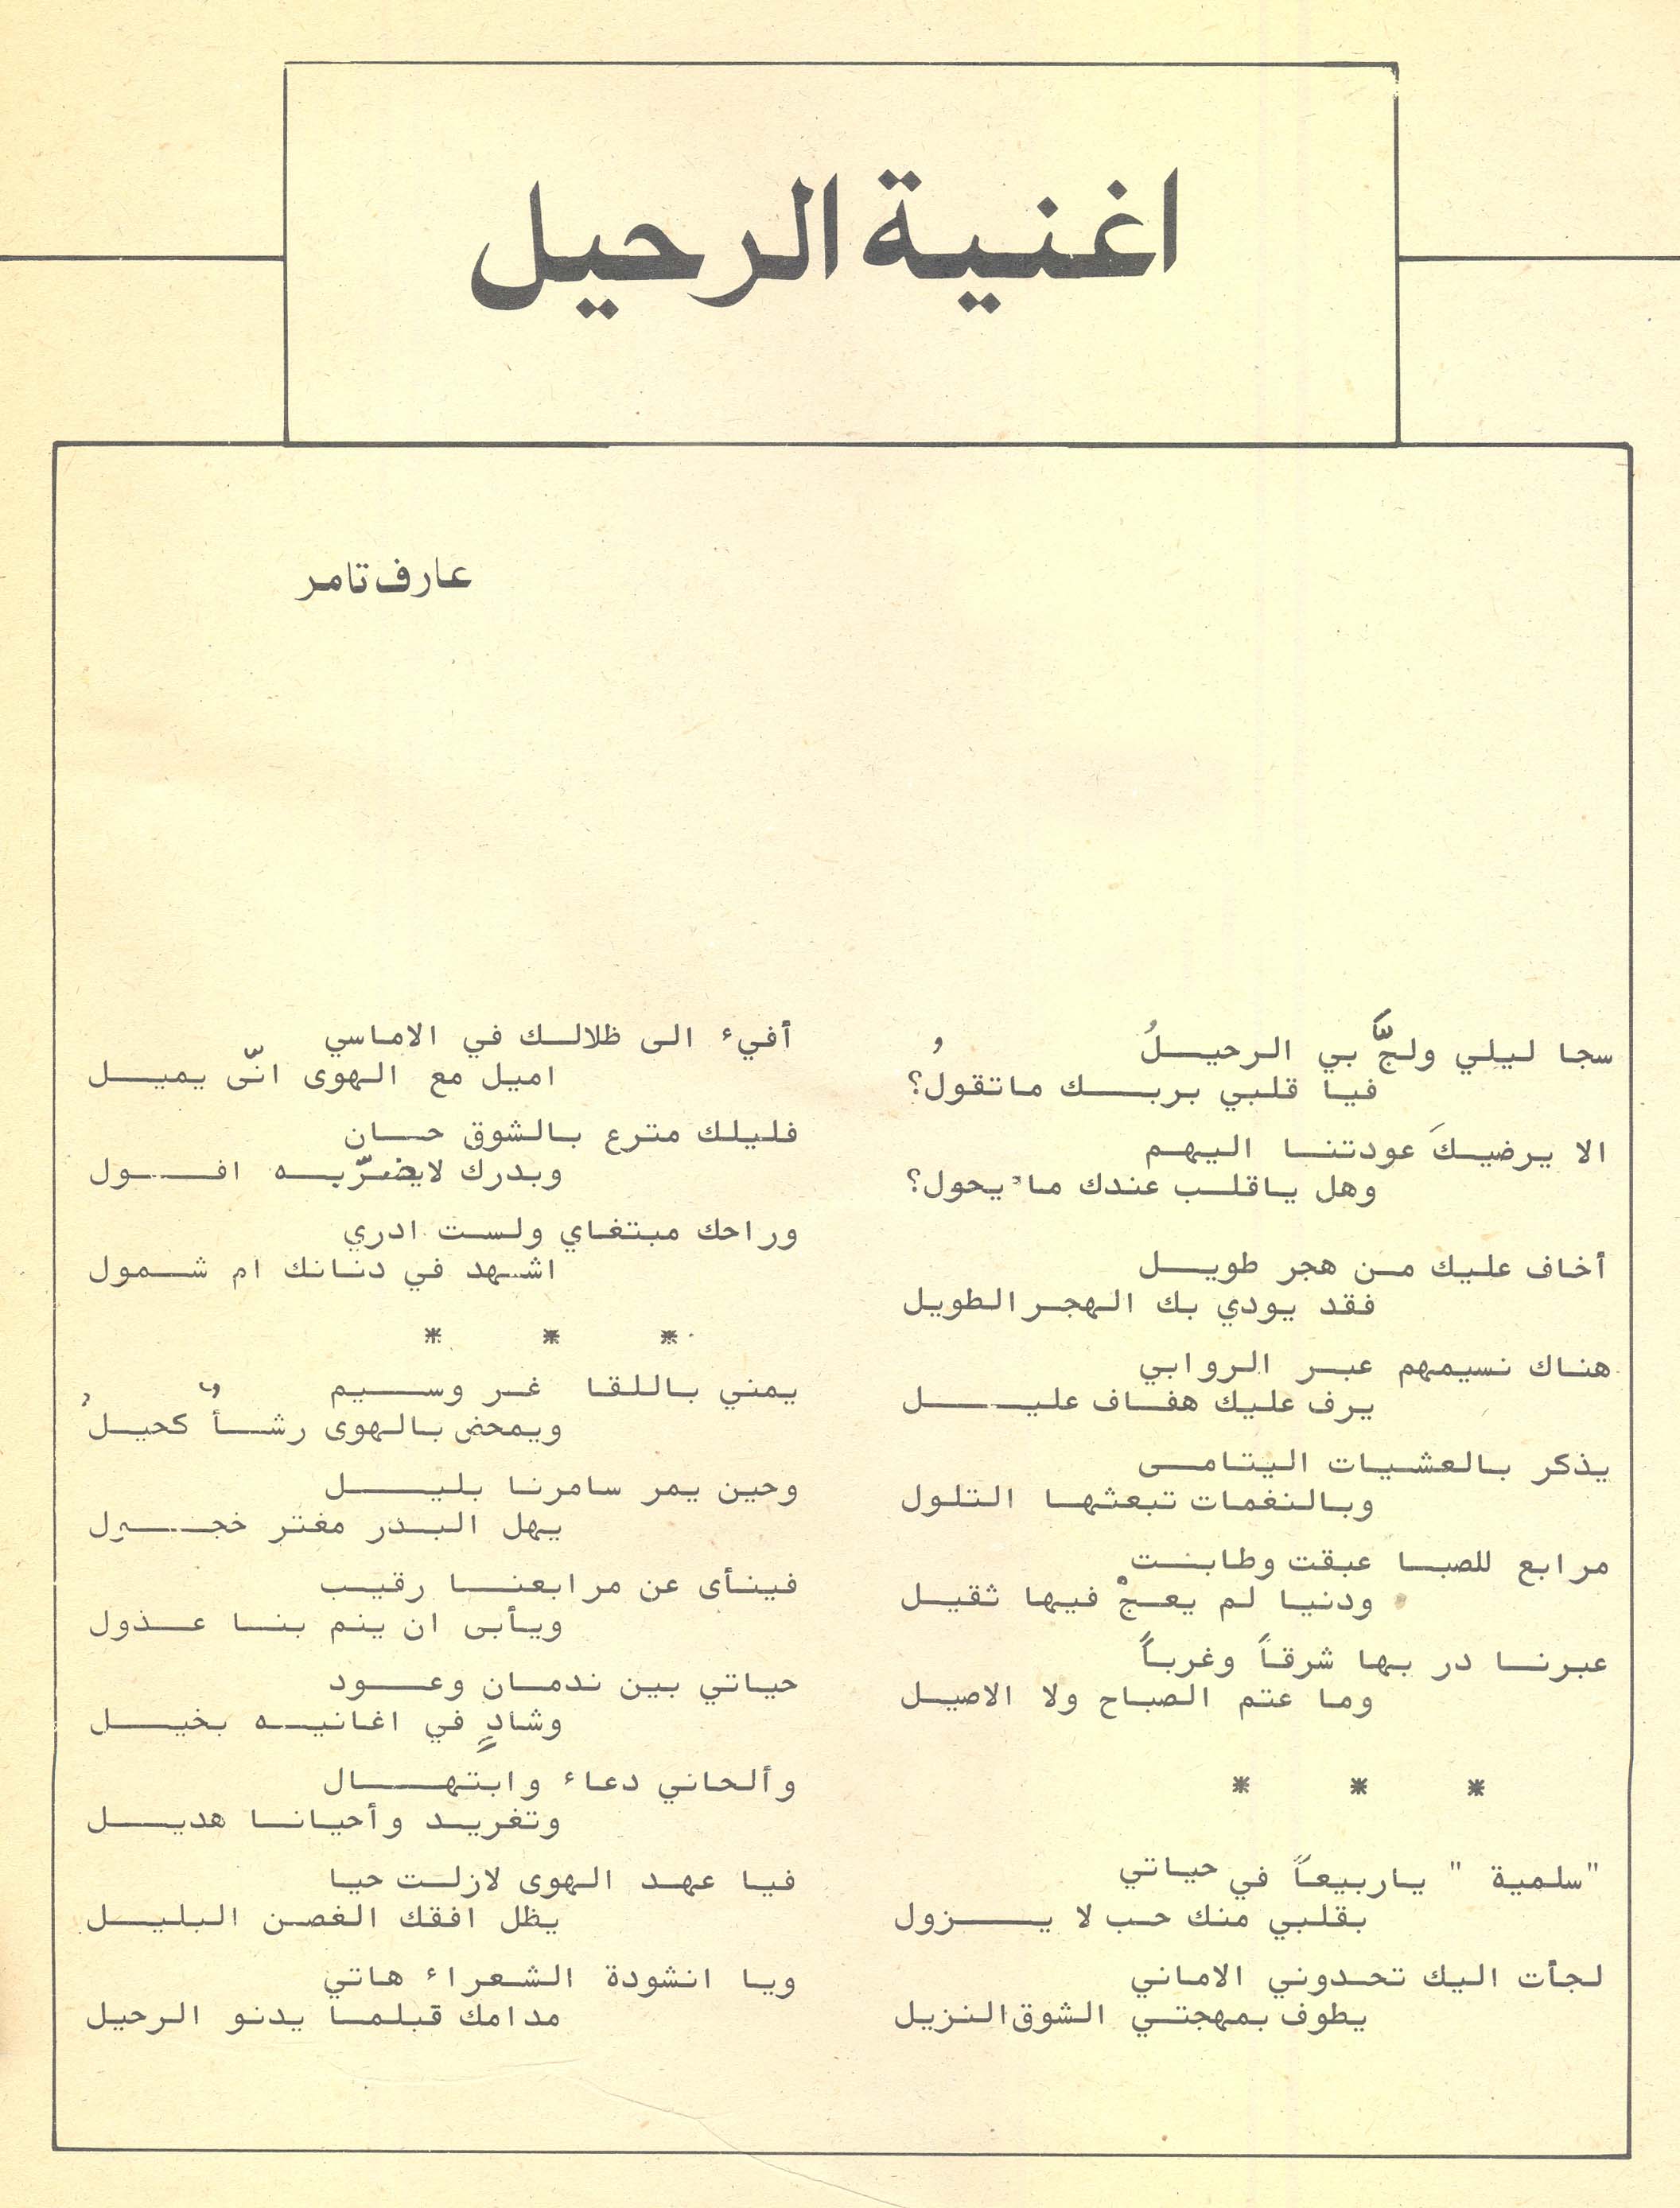 اغنية الرحيل
عارف تامر
سجا ليلي ولجَّ بي الرحيلُ
فيا قلبي بربك ماتقولُ؟
الا يرضيكَ عودتنا اليهم
وهل ياقلب عندك ما يحول؟
أخاف عليك من هجر طويل
فقد يودي بك الهجر الطويل
هناك نسيمهم عبر الروابي
يرف عليك هفاف عليل
يذكر بالعشيات اليتامى
وبالنغمات تبعثها التلول
مرابع للصبا عبقت وطابت
ودنيا لم يعجْ فيها ثقيل
عبرنا در بها شرقاً وغرباً
وما عتم الصباح ولا الاصيل
* * *
"سلمية " ياربيعاً في حياتي
بقلبي منك حب لا يزول
لجأت اليك تحدوني الاماني
يطوف بمهجتي الشوق النزيل
أفيء الى ظلالك في الاماسي
اميل مع الهوى انّى يميل
فليلك مترع بالشوق حان
وبدرك لايضرّبه افول
وراحك مبتغاي ولست ادري
اشهد في دنانك ام شمول
* * *
يمني باللقا غر وسيم
ويمحض بالهوى رشأ كحيلُ
وحين يمر سامرنا بليل
يهل البدر مغتر خجول
فينأى عن مرابعنا رقيب
ويأبى ان ينم بنا عذول
حياتي بين ندمان وعود
وشادٍ في اغانيه بخيل
وألحاني دعاء وابتهال
وتغريد وأحيانا هديل
فيا عهد الهوى لازلت حيا
يظل افقك الغصن البليل
ويا انشودة الشعراء هاتي
مدامك قبلما يدنو الرحيل